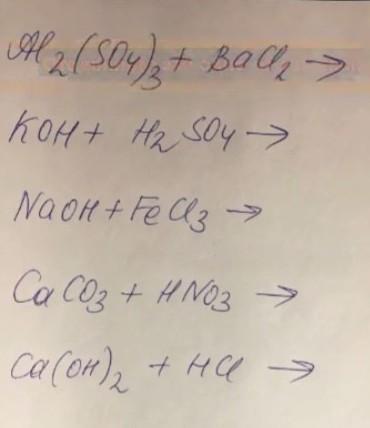 Al2(SO4)3 + BaCl2 →
KOH + H2SO4 →
NaOH + FeCl3 →
CaCO3 + HNO3 →
Ca(OH)2 + HCl →